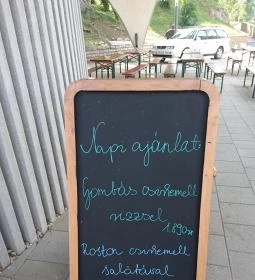 Napi ajánlat:
Gombás csirkemell
rizzsel
1.890.-
Roston csirkemell
salátával